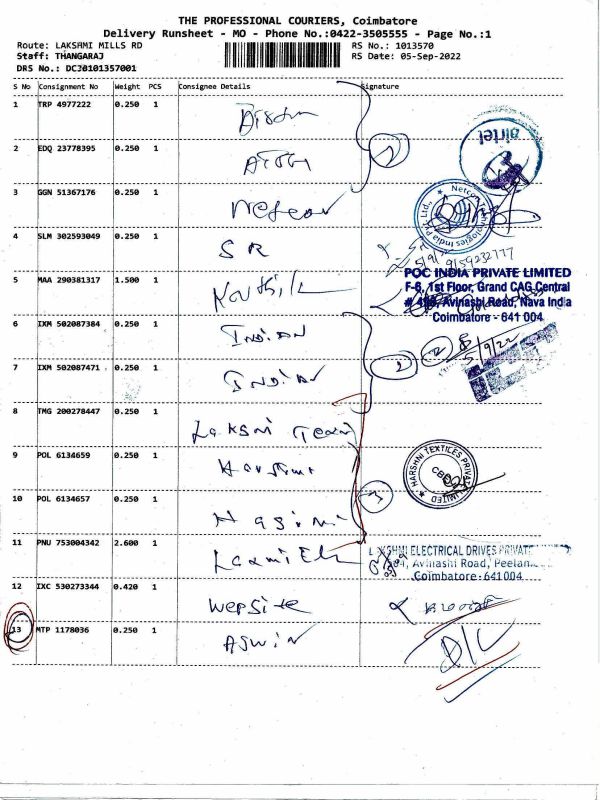 THE PROFESSIONAL COURIERS, Coimbatore
Delivery Runsheet - MO - Phone No.:0422-3505555 - Page No.:1
Route: LAKSHMI MILLS RD
Staff: THANGARAJ
DRS No.: DCJ0101357001
RS No.: 1013570
RS Date: 05-Sep-2022
S No Consignment No Weight PCS Consignee Details Signature
1 TRP 4977222 0.250 1
airtel
2 EDQ 23778395 0.250 1
3 GGN 51367176 0.250 1 Netcon
Netcon Technologies India Pvt. Ltd.,
4 SLM 302593049 0.250 1 SR
5/9/22 9159232777
5 MAA 290381317 1.500 1
POC INDIA PRIVATE LIMITED
F-6, 1st Floor, Grand CAG Central
Avinashi Road, Nava India
Coimbatore - 641 004
6 IXM 502087384 0.250 1 INDIAN
2
2
5/9/22
7 IXM 502087471 0.250 1 INDIAN
8 TMG 200278447 0.250 1 Laksmi
9 POL 6134659 0.250 1
HARSHNI TEXTILES PRIVATE LIMITED
CBE
10 POL 6134657 0.250 1
3
11 PNU 753004342 2.600 1
LAKSHMI ELECTRICAL DRIVES PRIVATE
Avinashi Road, Peelam
Coimbatore-641004
12 IXC 530273344 0.420 1 Wepsite
13 MTP 1178036 0.250 1 ASWIN
D/L